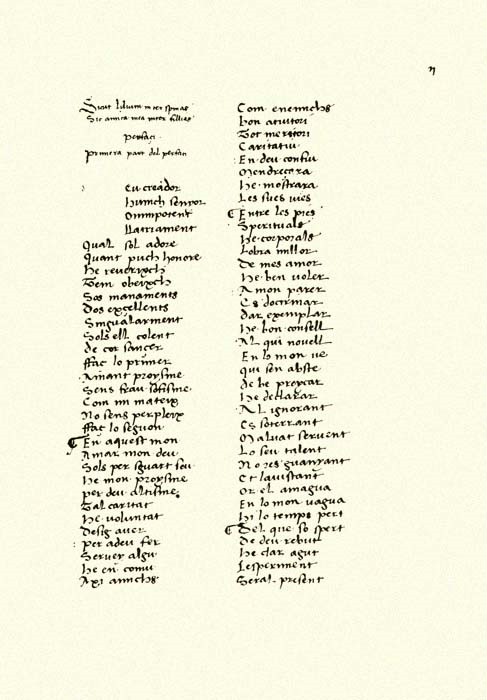 n
Sicut lilium inter spinas
Sic amica mea inter fillies
perfaçi
Primera part del perfaçi
Eu creador
hunich senyor
Omnipotent
Llatriament
Qual sol adore
Quant puch honore
he reverexch
Tem obeixch
Sos manaments
Dos excellents
Singularment
Sols ell colent
de cor sancer
ffac lo primer
Amant proysme
Sens frau sofisme
Com mi mateix
No sens perpleix
ffac lo segon
En aquest mon
Amar mon deu
Sols per sguart seu
he mon proysme
per deu altisme
Tal caritat
he voluntat
Desig aver
per adeu fer
Servey algu
he en comu
Axi amichs
Com enemichs
bon aiutori
Tot meritori
Caritatiu
En deu confiu
Mendreçara
he mostrara
Les sues vies
Entre les pies
Sperituals
he corporals
Lobra millor
De mes amor
he ben voler
A mon parer
Es doctrinar
dar exemplar
he bon consell
Al qui novell
En lo mon ve
qui son abste
de be propcar
he declarar
Al ignorant
Es soterrant
Malvat servent
Lo seu talent
No res guanyant
Et lavistant
or el amagua
En lo mon vagua
hi lo temps pert
Del que so spert
De deu rebut
he clar agut
Lesperiment
Seral present